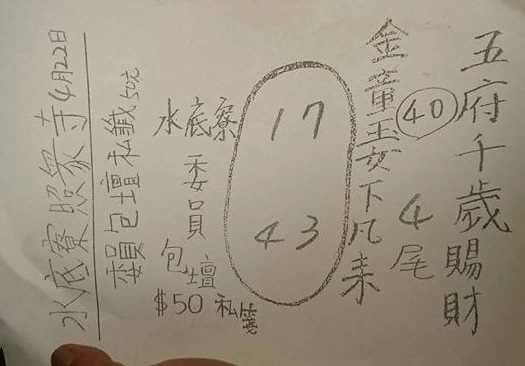 五府千歲賜財
金童玉女下凡來
40
4尾
17
43
水底寮
委員
包壇
$50 私籤
水底寮照眾寺4月22日
包壇私籤